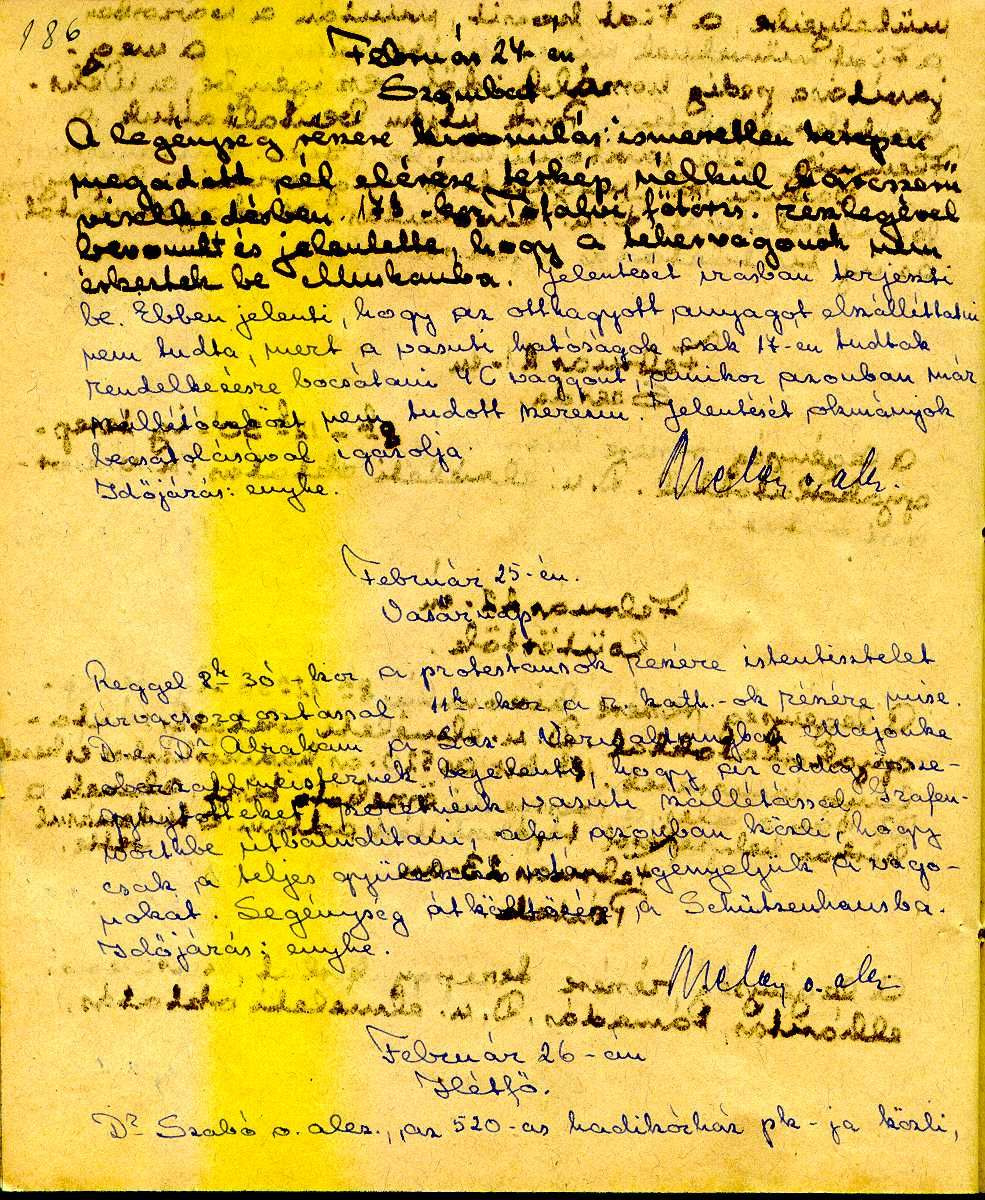 186
Február 24-én
Szombat
A legénység részére kivonulás: ismeretlen terepen
megadott cél elérése térkép nélkül harcszerű
viselkedésben. 17h -kor Tófalvi főtörzs. részlegével
bevonult és jelentette, hogy a tehervagonok nem
érkeztek be Muskauba. Jelentését írásban terjeszti
be. Ebben jelenti, hogy az otthagyott anyagot elszállíttatni
nem tudta, mert a vasuti hatóságok csak 17-en tudtak
rendelkezésre bocsátani 4 C vaggont, amikor azonban már
szállítóeszközt nem tudott szerezni. Jelentését okmányok
becsatolásával igazolja.
Időjárás: enyhe.
o. alez.
Február 25-én.
Vasárnap
Reggel 8h 30 -kor a protestánsok részére istentisztelet
úrvacsoraosztással. 11h kor a r. kath.-ok részére mise.
D.e. Dr Ábrahám a
bejelenti, hogy az eddig össze-
gyüjtötteket szeretnénk vasúti szállítással Grafen-
wörthbe útbaindítani, aki azonban közli, hogy
csak a teljes gyülekezés után igényeljük a vago-
nokat. Legénység átköltözése a Schützenhausba.
Időjárás: enyhe.
o. alez.
Február 26-án
Hétfő.
Dr Szabó o. alez., az 520-as hadikórház pk-ja közli,